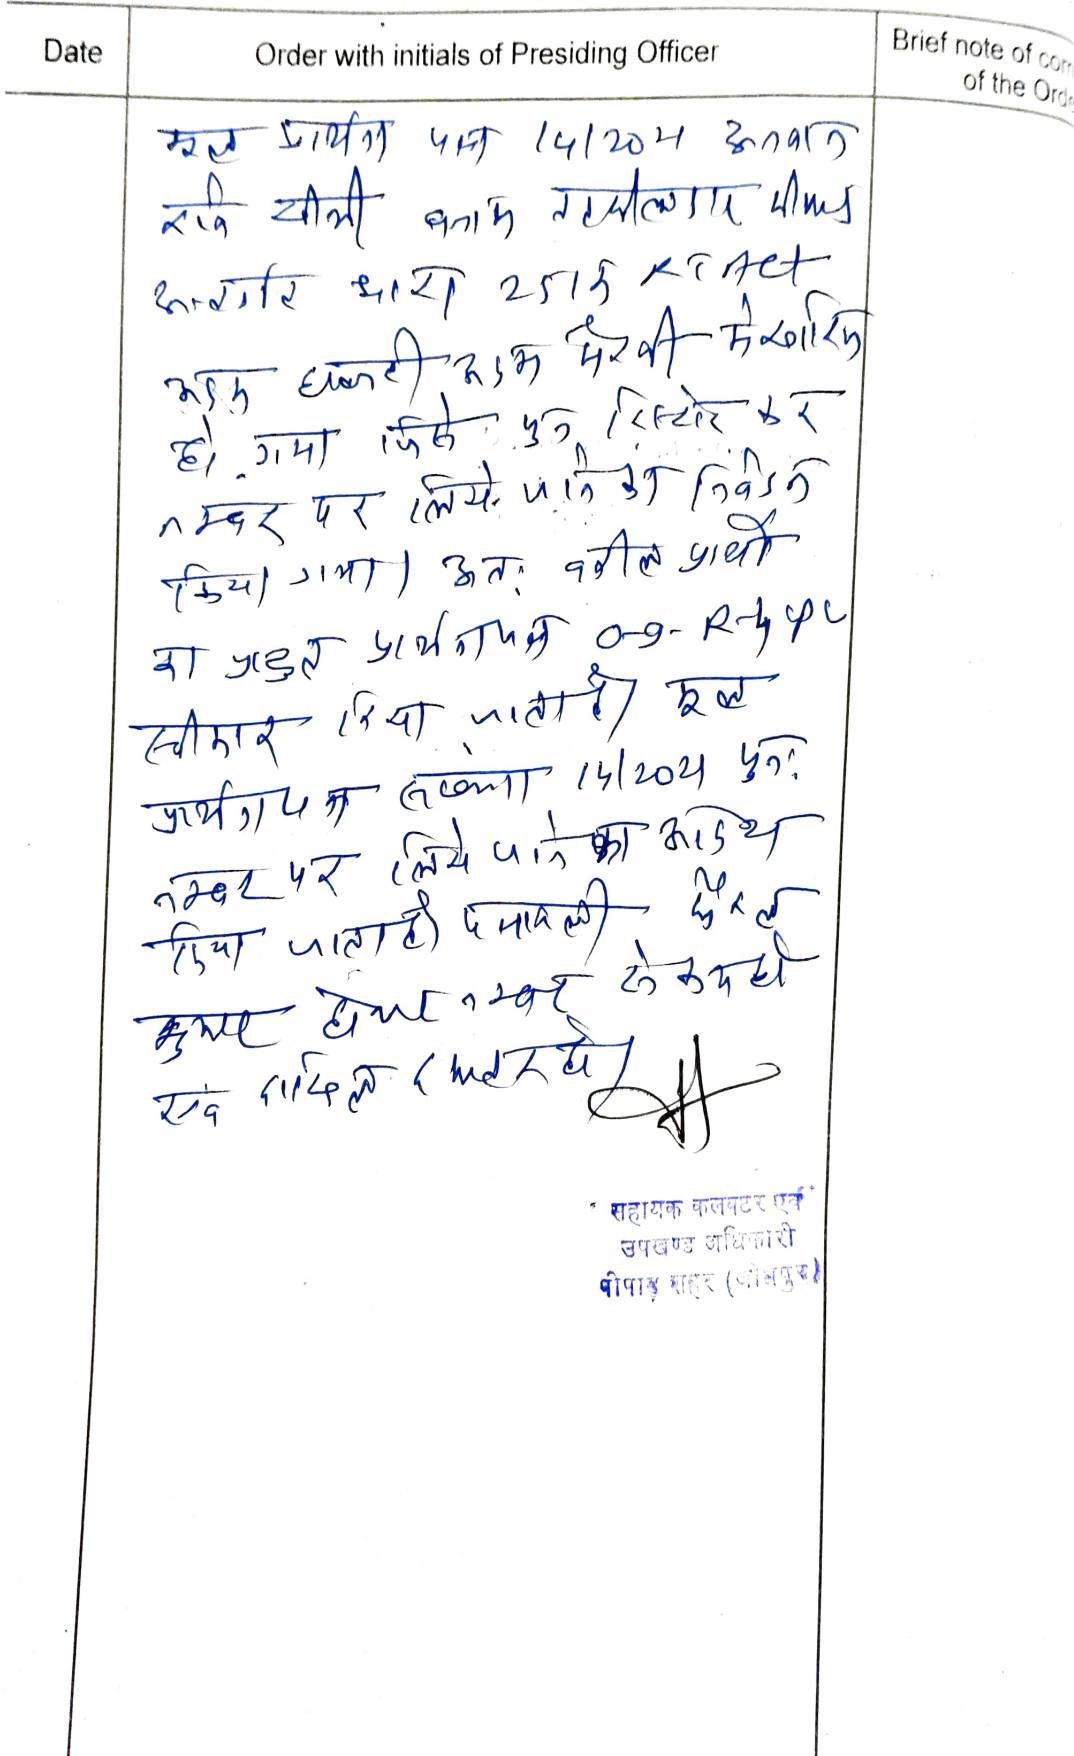 Date
Order with initials of Presiding Officer
Brief note of com
of the Orde
मूल प्रार्थना पत्र 14/2021 अनवान
रवि जोशी बनाम तहसीलदार पीपाड
अन्तर्गत धारा 251ए RT Act
अदम हाजरी अदम पैरवी मे खारिज
हो गया जिसे पुनः रिस्टोर कर
नम्बर पर लिये जाने का निवेदन
किया गया। अतः वकील प्रार्थी
का प्रस्तुत प्रार्थनापत्र O-9- R-4 CPC
स्वीकार किया जाता है। मूल
प्रार्थनापत्र संख्या 14/2021 पुनः
नम्बर पर लिये जाने का आदेश
दिया जाता है। पत्रावली फैसल
शुमार होकर नम्बर से कम हो
दाखिल दफ्तर हो।
सहायक कलक्टर एवं
उपखण्ड अधिकारी
पीपाड़ शहर (जोधपुर)